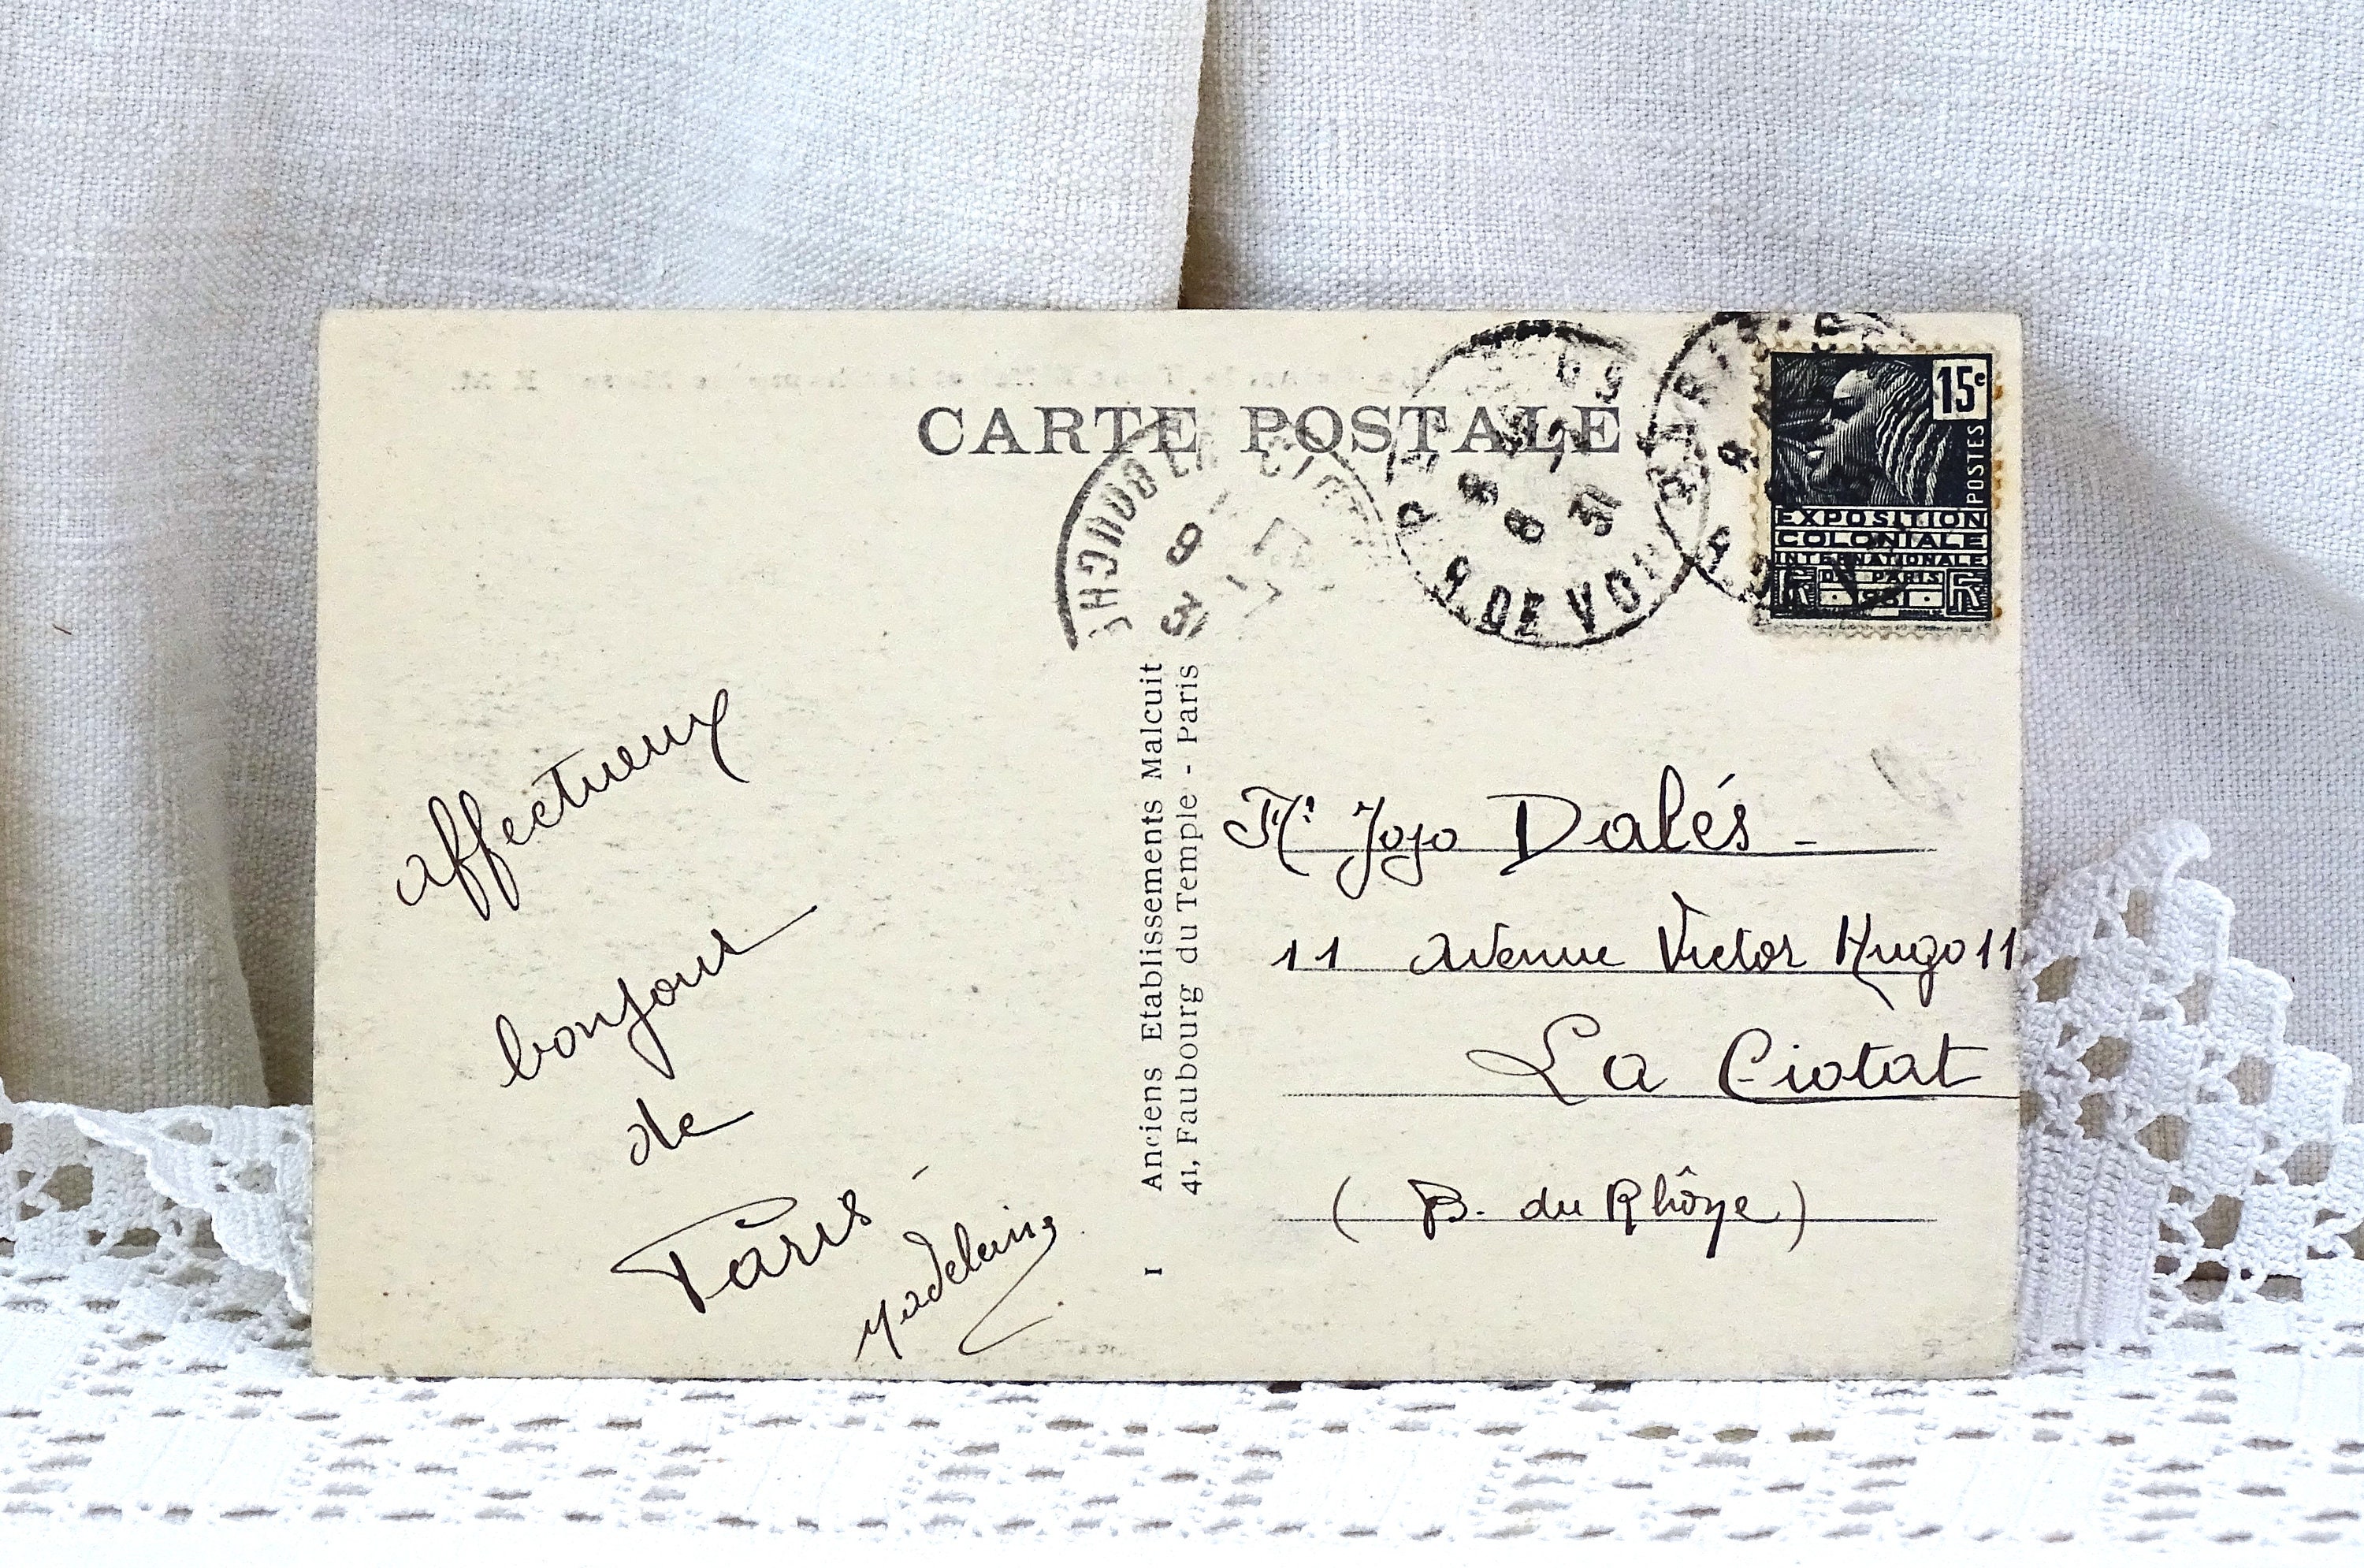 CARTE POSTALE
15c
POSTES
EXPOSITION
COLONIALE
INTERNATIONALE
DE PARIS
8
8 31
R. DE VO
LA CIOTAT
BOUCHES
9
31
affectueux
bonjour
de
Paris
Madeleine
Anciens Etablissements Malcuit
41, Faubourg du Temple - Paris
I
Jojo Dalés -
11 Avenue Victor Hugo 11
La Ciotat
(B. du Rhône)